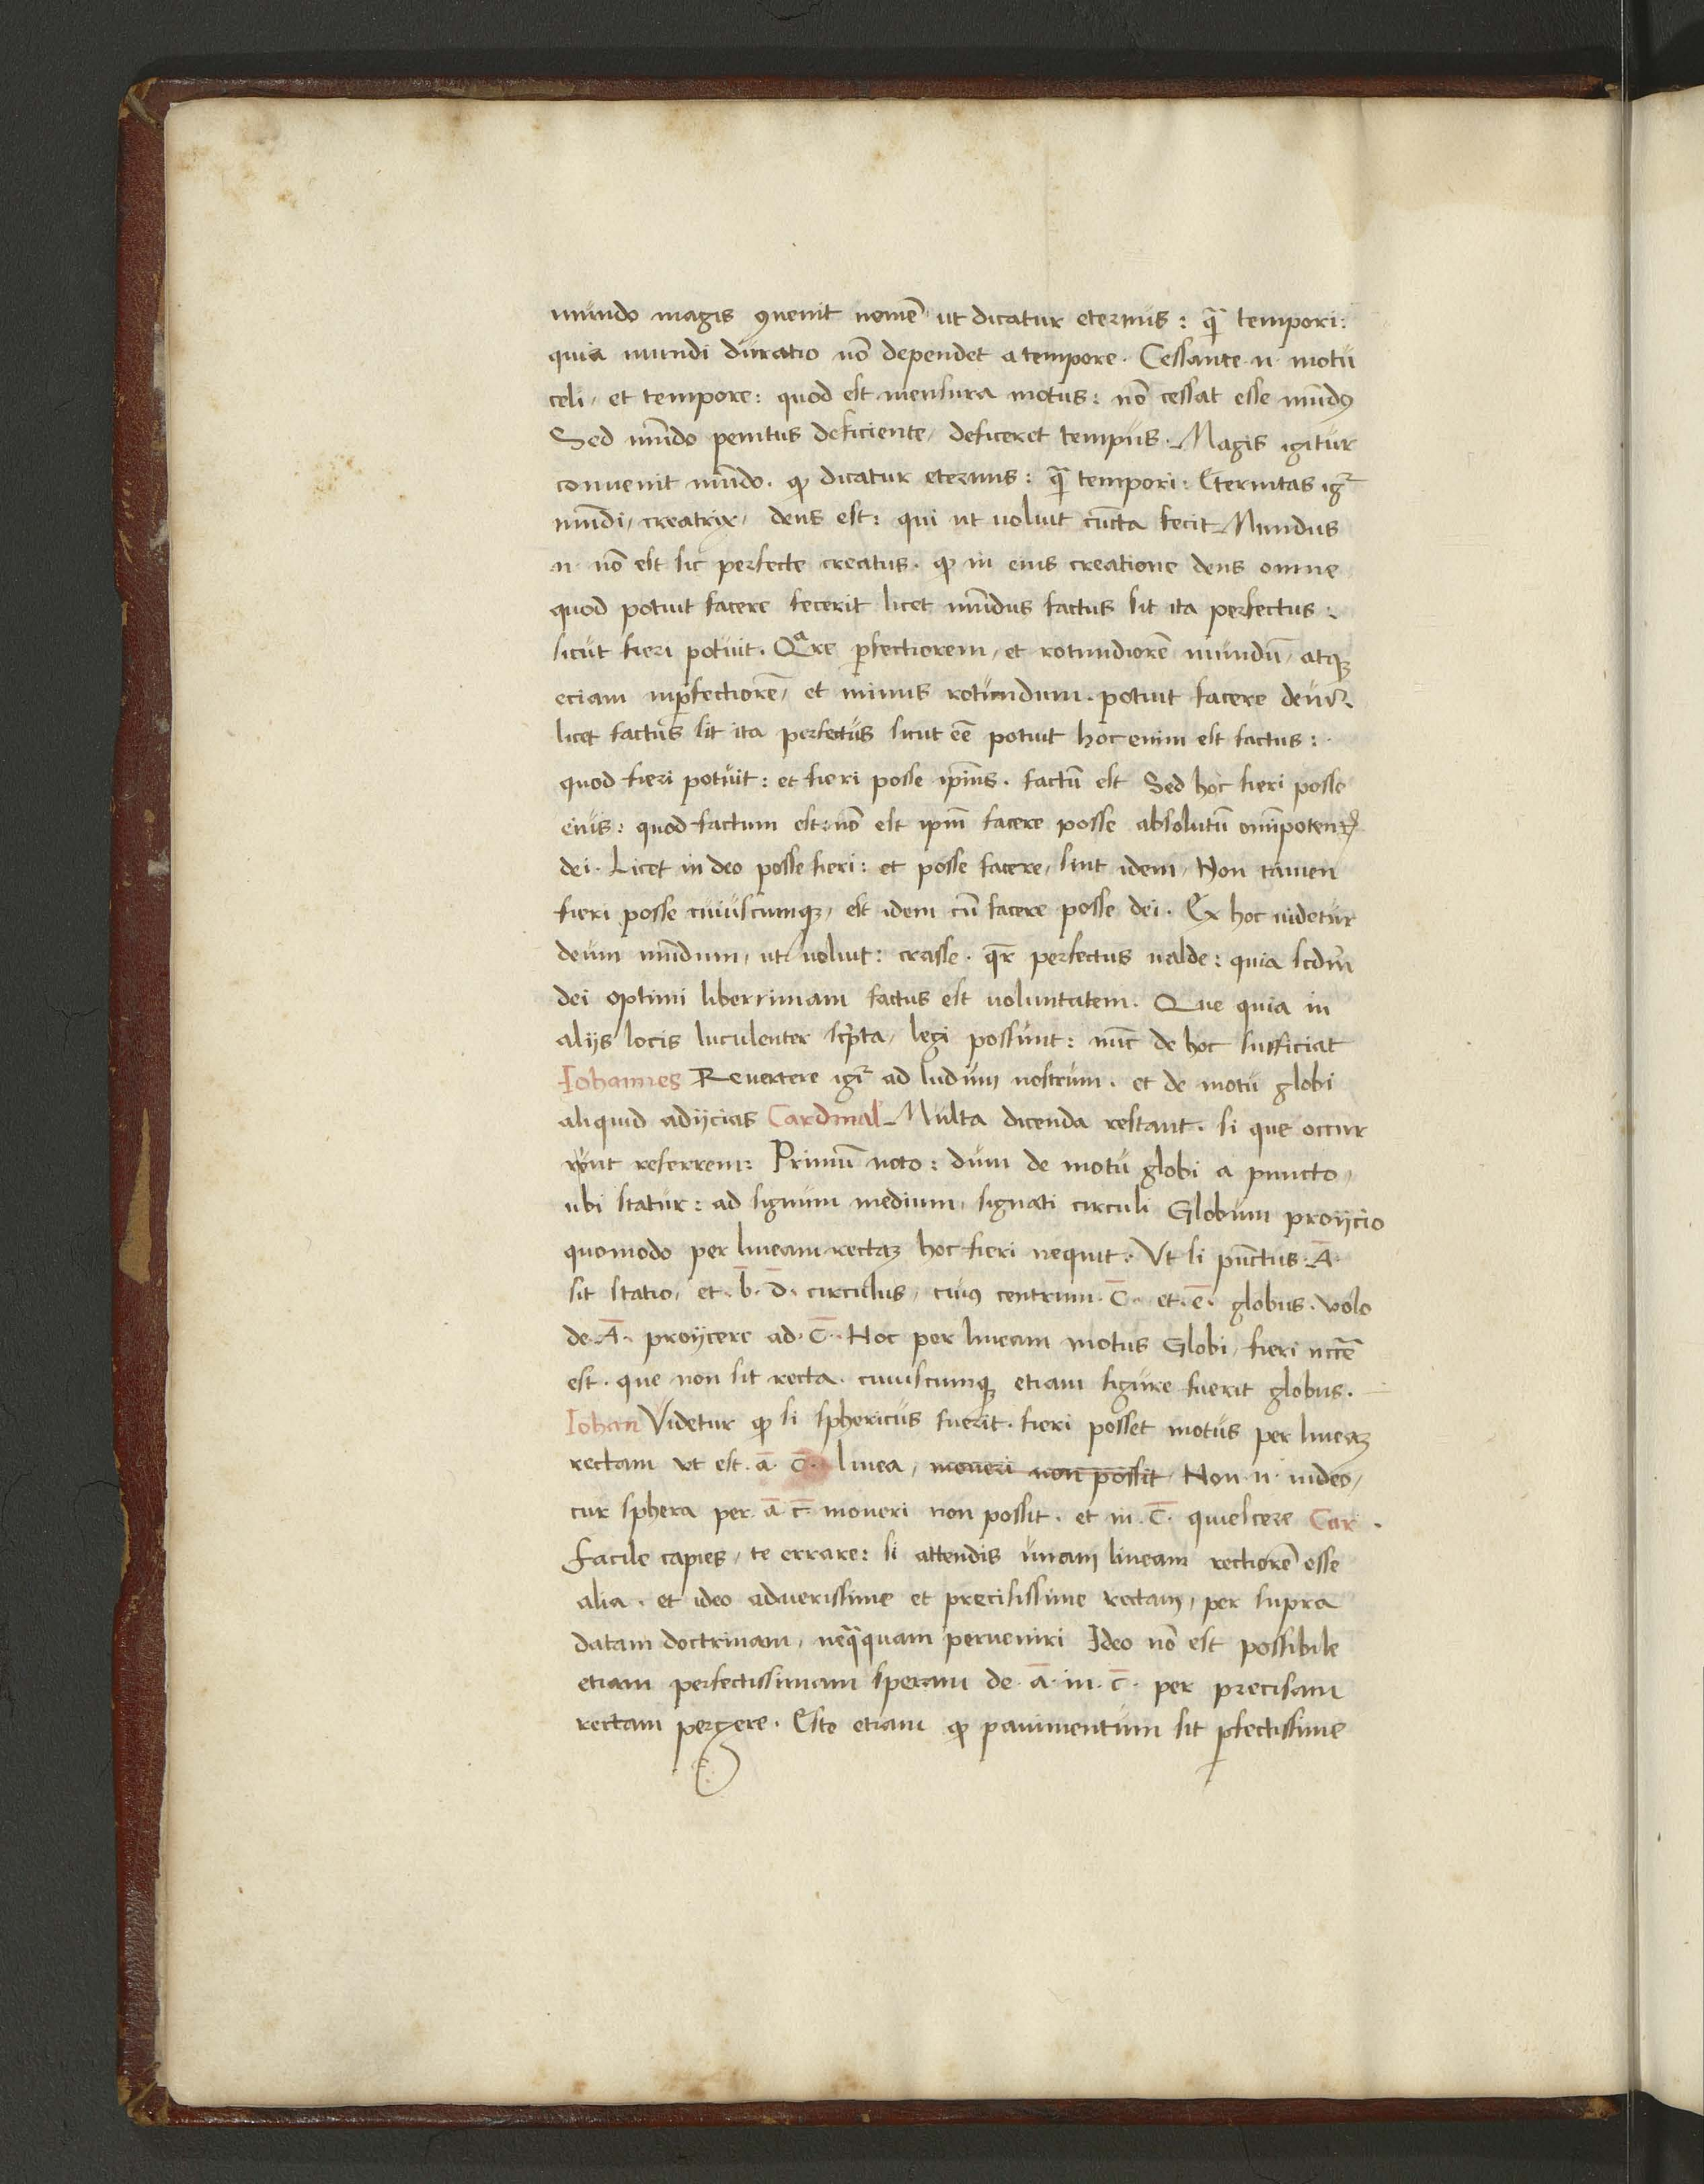 mundo magis ꝯuenit nomē ut dicatur eternus : qᷓ tempori :
quia mundi duratio nō dependet a tempore . Cessante .n. motu
celi , et tempore : quod est mensura motus : nō cessat esse mūdꝰ
Sed mūdo penitus deficiente , deficeret tempus . Magis igitur
conuenit mūdo . ꝙ dicatur eternus : qᷓ tempori : Eternitas igr̄
mūdi , creatrix , deus est : qui ut uoluit cūcta fecit Mundus
.n. nō est sic perfecte creatus . ꝙ in eius creatione deus omne
quod potuit facere fecerit licet mūdus factus sit ita perfectus :
sicut fieri potuit . Qᵃre ꝑfectiorem , et rotundiorē mundū , atqꝫ
eciam inꝑfectiorē , et minus rotundum . potuit facere deus .
licet factus sit ita perfectus sicut eē potuit hoc enim est factus :
quod fieri potuit : et fieri posse ip̄ius . factū est Sed hoc fieri posse
eius : quod factum est : nō est ip̄m facere posse absolutū om̄ipoten
dei . Licet in deo posse fieri : et posse facere , sint idem , Non tamen
fieri posse cuiuscumqꝫ , est idem cū facere posse dei . Ex hoc uidetur
deum mūdum , ut uoluit : crasse . qr̄ perfectus ualde : quia scdm̄
dei optimi liberrimam factus est uoluntatem . Que quia in
alijs locis luculenter sc̄pta , legi possunt : nūc de hoc sufficiat
Iohannes Reuertere igr̄ ad ludum nostrum . et de motu globi
aliquid adijcias Cardinal Multa dicenda restant . si que occur
runt referrem : Primū noto : dum de motu globi a puncto ,
ubi statur : ad signum medium , signati circuli Globum proijcio
quomodo per lineam rectaꝫ hoc fieri nequit . Vt si pūctus . Ā .
sit statio , et . b̄ . d̄ . circulus , cuiꝰ centrum . c̄ . et . ē . globus . volo
de . Ā . proijcere ad . c̄ . Hoc per lineam motus Globi , fieri nccē
est . que non sit recta . cuiuscumqꝫ etiam figure fuerit globus .
Iohan Videtur ꝙ si sphericus fuerit . fieri posset motus per lineaꝫ
rectam ut est . ā . c̄ . linea , moueri non possit . Non .n. uideo ,
cur sphera per . ā c̄ . moueri non possit . et in . c̄ . quiescere Car .
Facile capies , te errare : si attendis unam lineam rectiorē esse
alia . et ideo aduerissime et precisissime rectam , per supra
datam doctrinam , neqᷓquam perueniri Ideo nō est possibile
etiam perfectissimam speram de . ā . in . c̄ . per precisam
rectam pergere . Esto etiam ꝙ pauimentum sit ꝑfectissime